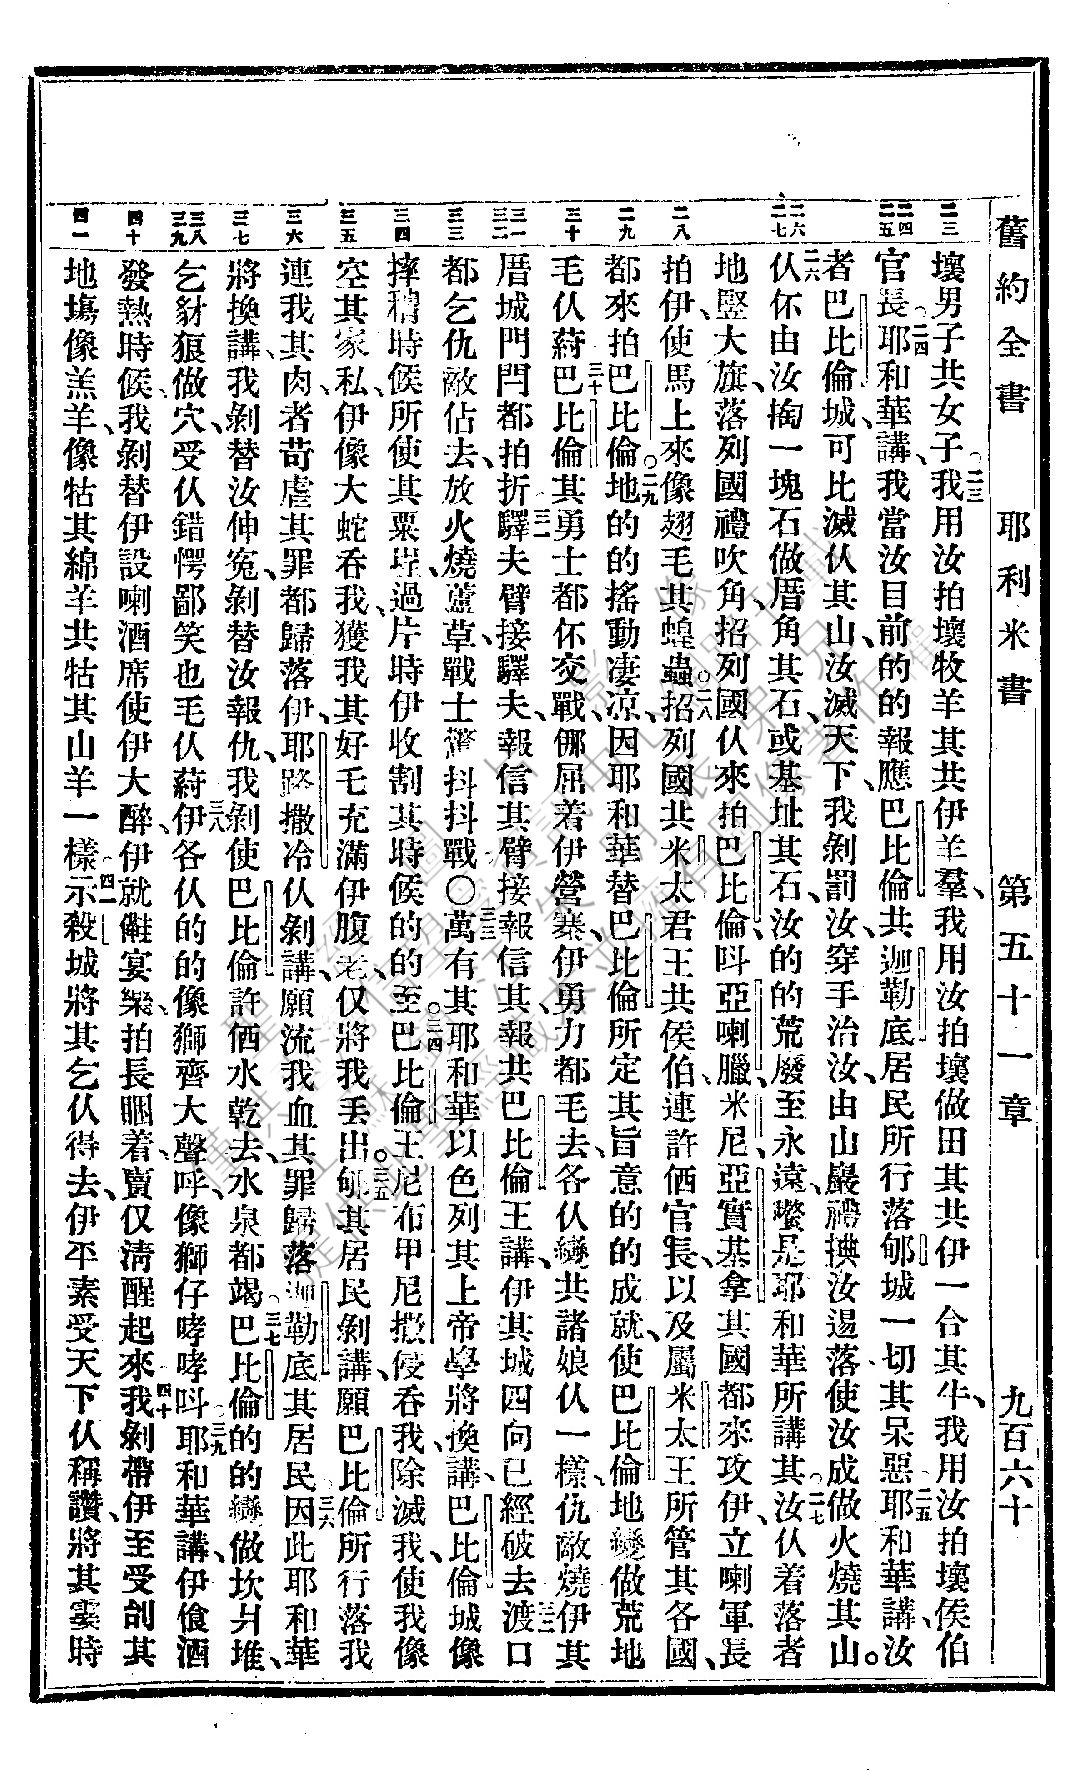 舊約全書　耶利米書　第五十一章　九百六十
壞男子共女子、二三我用汝拍壞牧羊其共伊羊羣、我用汝拍壞做田其共伊一合其牛、我用汝拍壞侯伯
官長、二四耶和華講、我當汝目前的的報應巴比倫共迦勒底居民所行落郇城一切其呆惡、二五耶和華講、汝
者巴比倫城可比滅仈其山、汝滅天下、我剝罰汝、穿手治汝、由山巖䄠㧒汝逿落使汝成做火燒其山。
二六仈伓由汝掏一塊石做厝角其石、或基址其石、汝的的荒廢至永遠、嚽是耶和華所講其、二七汝仈着落者
地豎大旗、落列國禮吹角、招列國仈來拍巴比倫、叫亞喇臘、米尼、亞實基拿其國都來攻伊、立喇軍長
拍伊、使馬上來像翅毛其蝗蟲、二八招列國共米太君王共侯伯、連許㑚官長、以及屬米太王所管其各國、
都來拍巴比倫、二九地的的搖動凄凉、因耶和華替巴比倫所定其旨意的的成就、使巴比倫地變做荒地
毛仈蒞、三十巴比倫其勇士都伓交戰、倻屈着伊營寨、伊勇力都毛去、各仈變共諸娘仈一樣、仇敵燒伊其
厝城門閂都拍折、三一驛夫臂接驛夫、報信其臂接報信其、報共巴比倫王講、伊其城四向已經破去、三二渡口
都乞仇敵佔去、放火燒蘆草、戰士㵮抖抖戰○三三萬有其耶和華以色列其上帝學將換講、巴比倫城像
摔䆀時候、所使其粟埕、過片時伊收割其時候的的至、三四巴比倫王尼布甲尼撒侵吞我、除滅我、使我像
空其家私、伊像大蛇吞我、獲我其好毛充滿伊腹老、仅將我丢出、三五郇其居民剝講、願巴比倫所行落我
連我其肉者苛虐其罪、都歸落伊、耶路撒冷仈剝講、願流我血其罪歸落迦勒底其居民、三六因此耶和華
將換講、我剝替汝伸冤、剝替汝報仇、我剝使巴比倫許㑚水乾去、水泉都竭、三七巴比倫的的變做坎爿堆、
乞豺狼做穴、受仈錯愕鄙笑也毛仈蒞、三八伊各仈的的像獅齊大聲呼、像獅仔哮哮叫、三九耶和華講、伊飲酒
發熱時候、我剝替伊設喇酒席、使伊大醉、伊就傱宴樂、拍長睏着、賣仅淸醒起來、四十我剝帶伊至受刣其
地塲、像羔羊、像牯其綿羊、共牯其山羊一樣、四一示殺城將其乞仈得去、伊平素受天下仈稱讚、將其霎時
二三
二四
二五
二六
二七
二八
二九
三十
三一
三二
三三
三四
三五
三六
三七
三八
三九
四十
四一